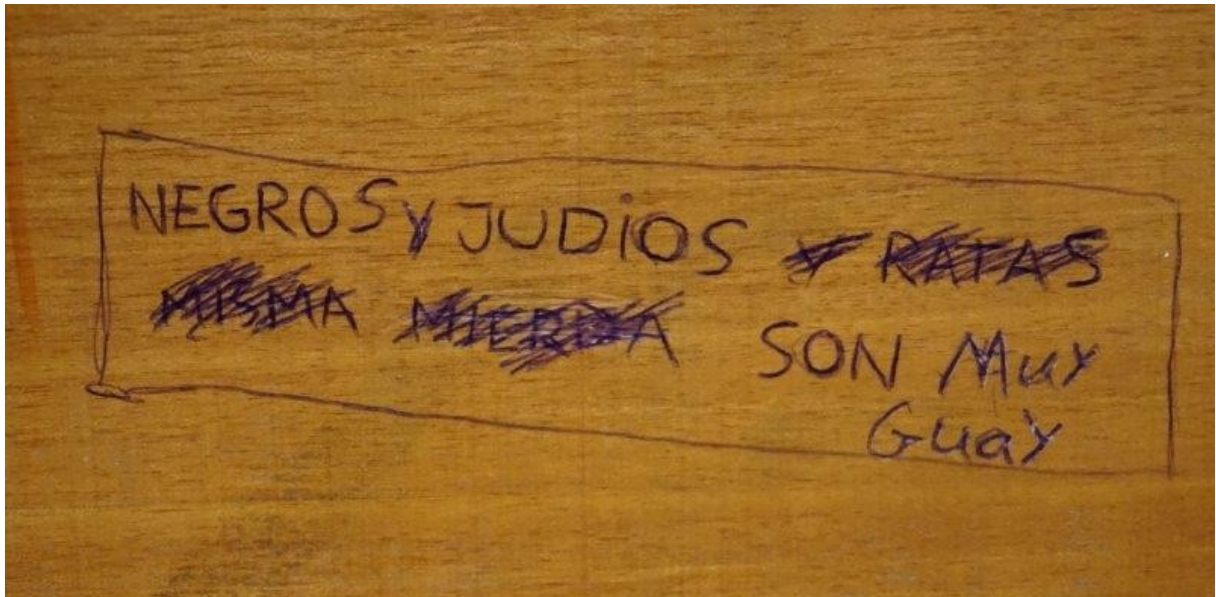 NEGROS y JUDiOS Y RATAS
MISMA MIERDA SON Muy
Guay